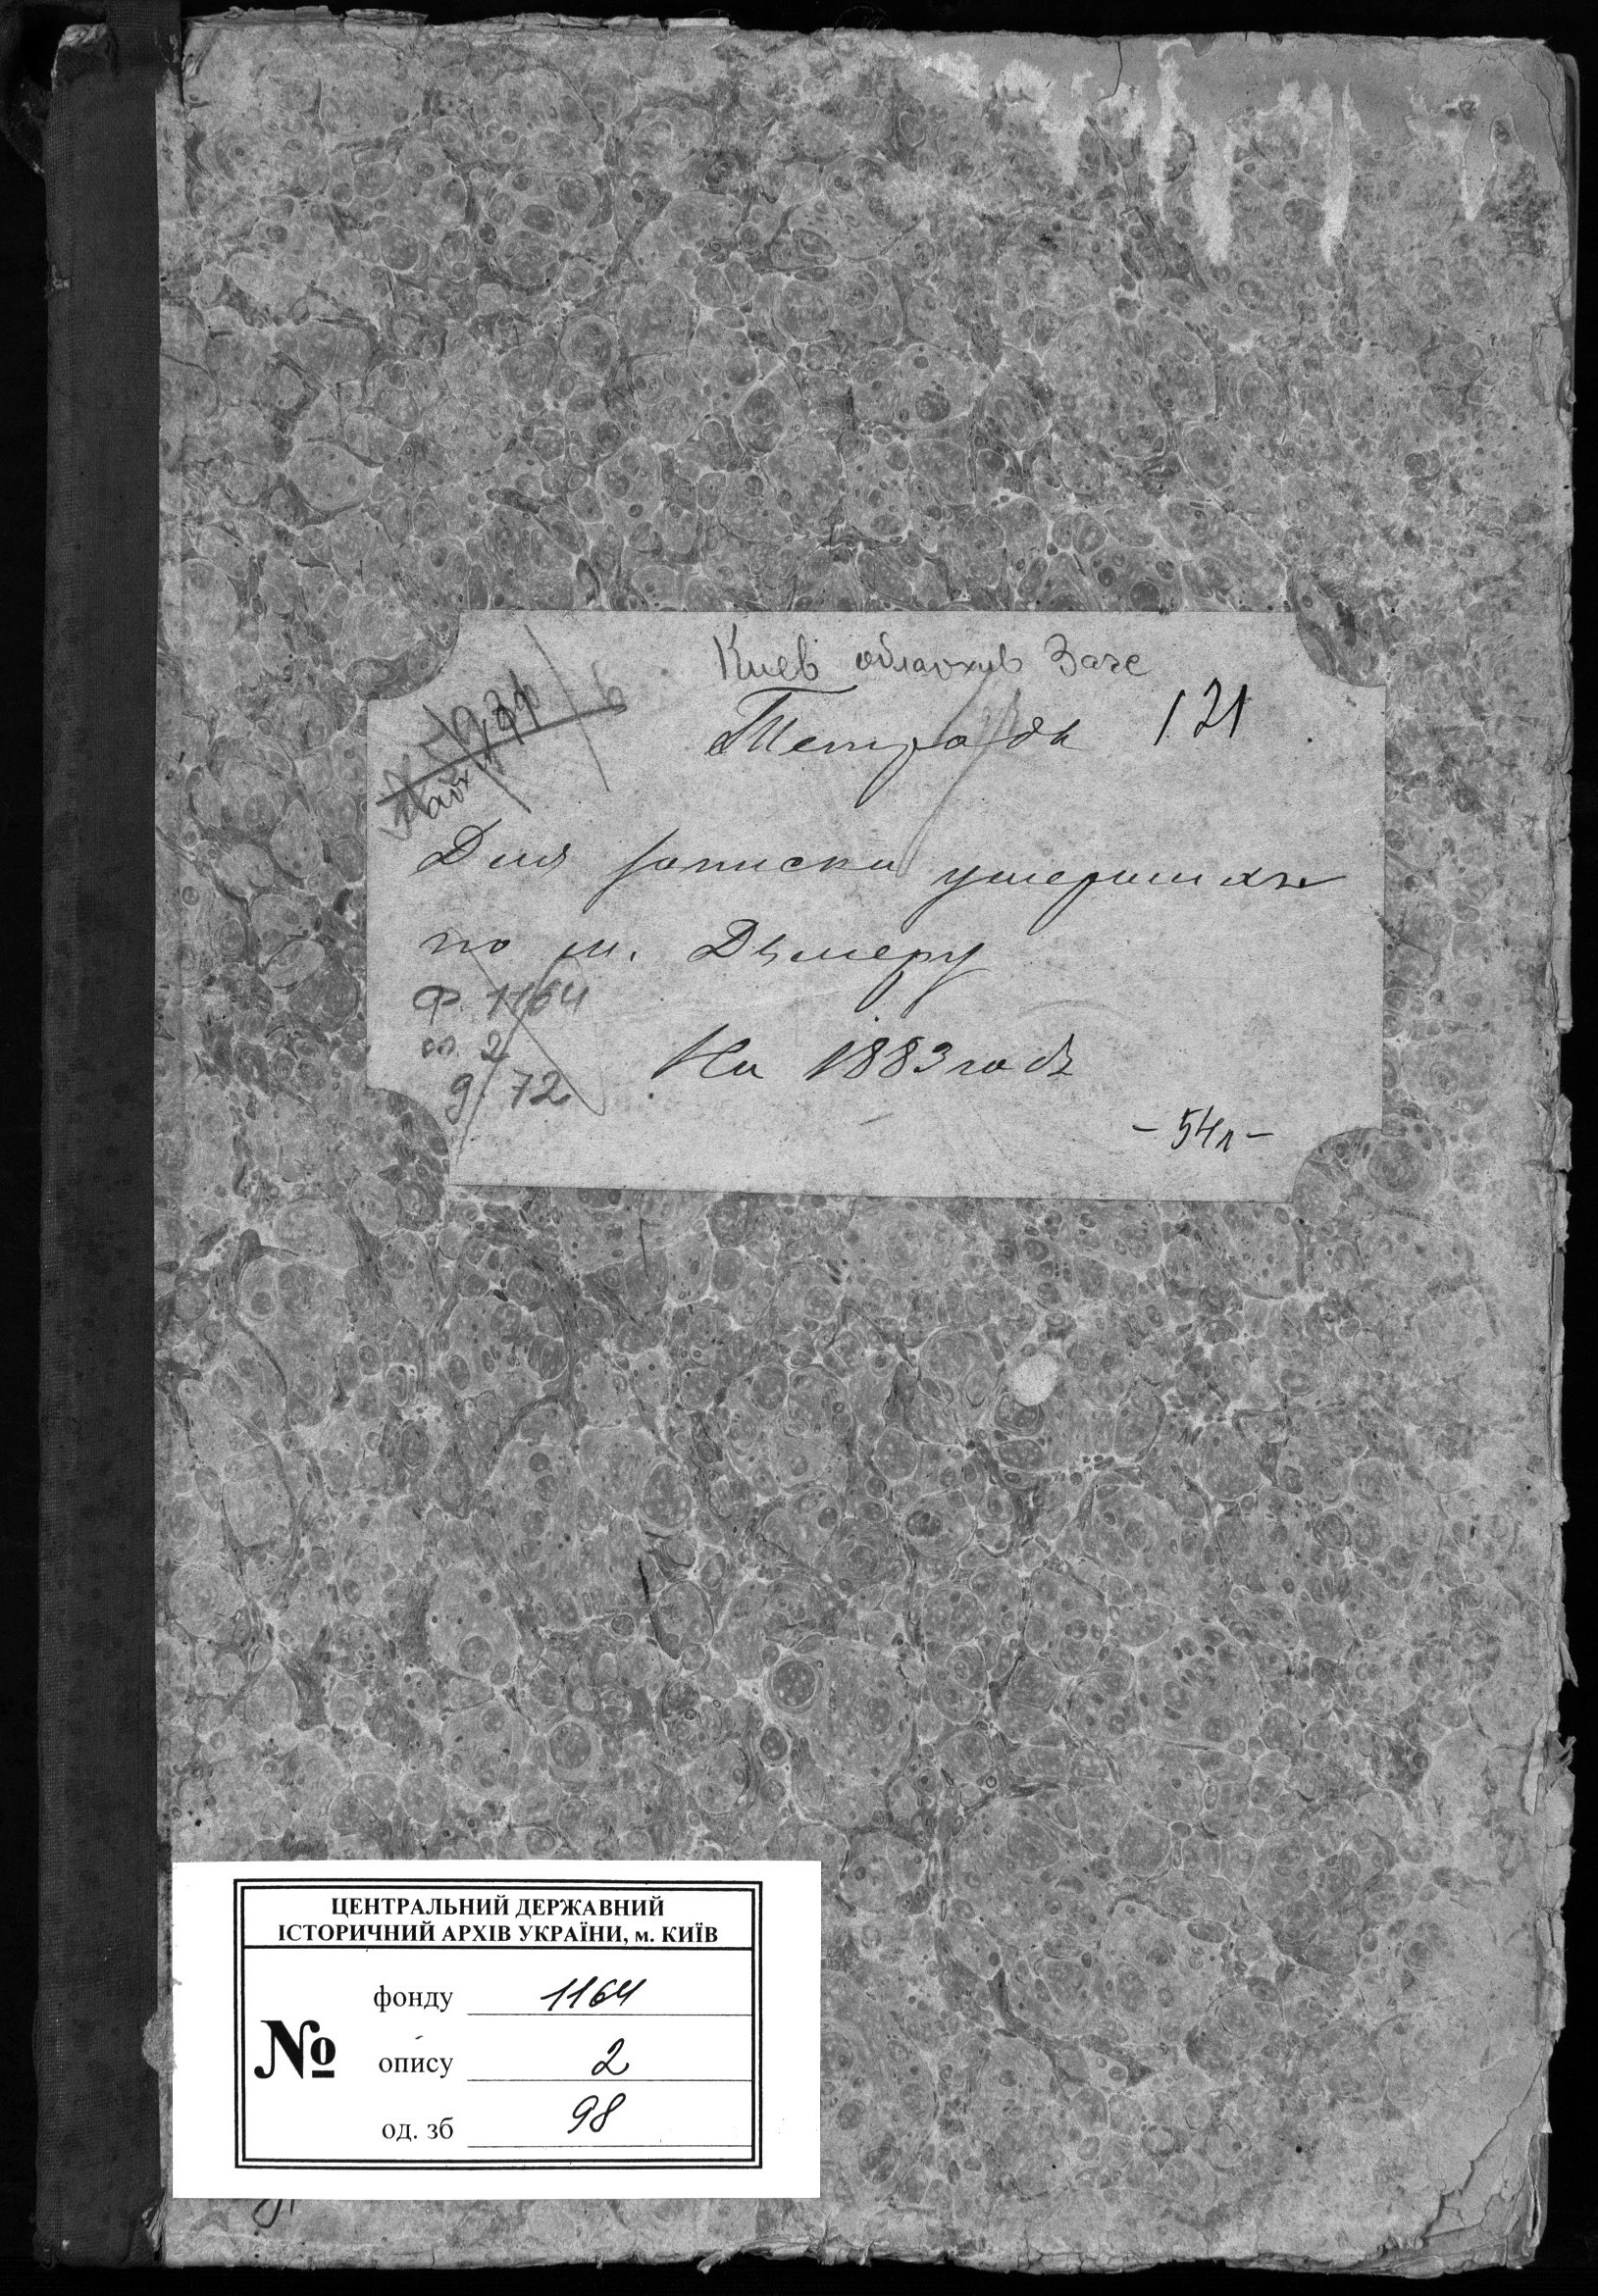 Киев облархив Загс
Тетрадь 121
Для записки умершихъ
по м. Дымеру
Ф. 1164
оп. 2
д. 72
На 1883 годъ
- 54л -
ЦЕНТРАЛЬНИЙ ДЕРЖАВНИЙ
ІСТОРИЧНИЙ АРХІВ УКРАЇНИ, м. КИЇВ
фонду 1164
№ опису 2
од. зб 98